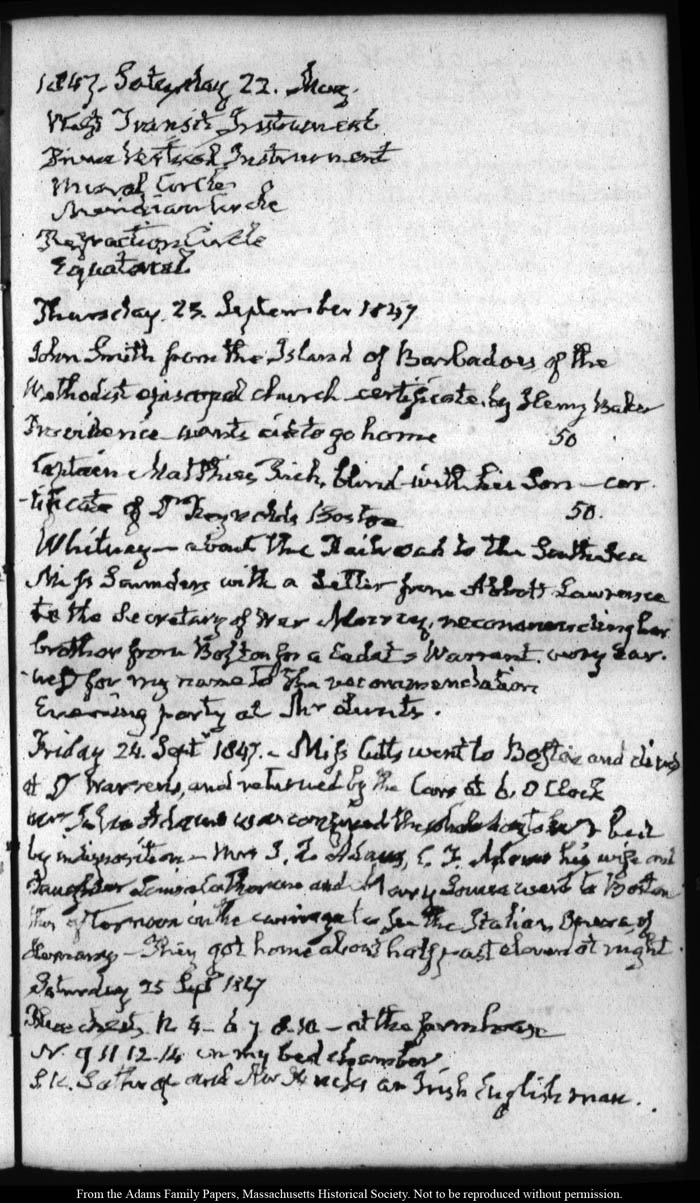 1847. Saturday 22. May.
West Transit Instrument
Prime Vertical Instrument
Mural Circle
Meridian Circle
Refraction Circle
Equatorial
Thursday. 23. September 1847
John Smith from the Island of Barbadoes of the
Methodist episcopal church certificate. by Henry Baker
Providence wants aid to go home 50
Captain Matthias Rich, blind with his Son — cer-
-tificate of Dr Reynolds Boston 50.
Whitney — about the Railroad to the South Sea
Miss Saunders with a Letter from Abbott Lawrence
to the Secretary of War Marcy, recommending her
brother from Boston for a Cadet's Warrant. very ear-
-nest for my name to the recommendation
Evening party at Mr Lunts.
Friday 24. Septr 1847. — Miss Cutts went to Boston and dined
at Dr Warrens, and returned by the Cars at 6. O Clock
Mrs John Adams was confined the whole day to her bed
by indisposition — Mrs J. Q. Adams, C. F. Adams his wife and
daughter and Mary Louisa went to Boston
this afternoon in the carriage to see the Italian Opera of
— They got home about half past eleven at night.
Saturday 25 Sept 1847
chests N 4 - 6 7 8. 10 — at the farm house
N. 9 11 12. 14 in my bed chamber
and Mr an Irish English man.
From the Adams Family Papers, Massachusetts Historical Society. Not to be reproduced without permission.